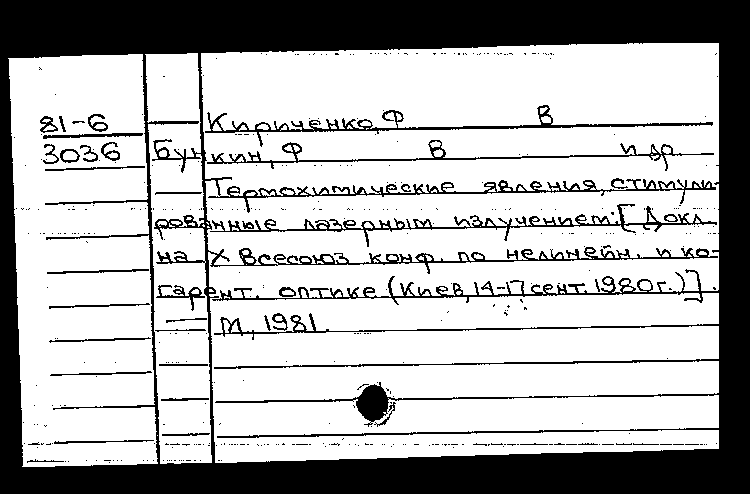 81-6 Кириченко, Ф В
3036 Бункин, Ф В и др.
Термохимические явления, стимули-
рованные лазерным излучением: [Докл.
на X Всесоюз конф. по нелинейн. и ко-
гарент. оптике (Киев, 14-17 сент. 1980г.)].
М., 1981.